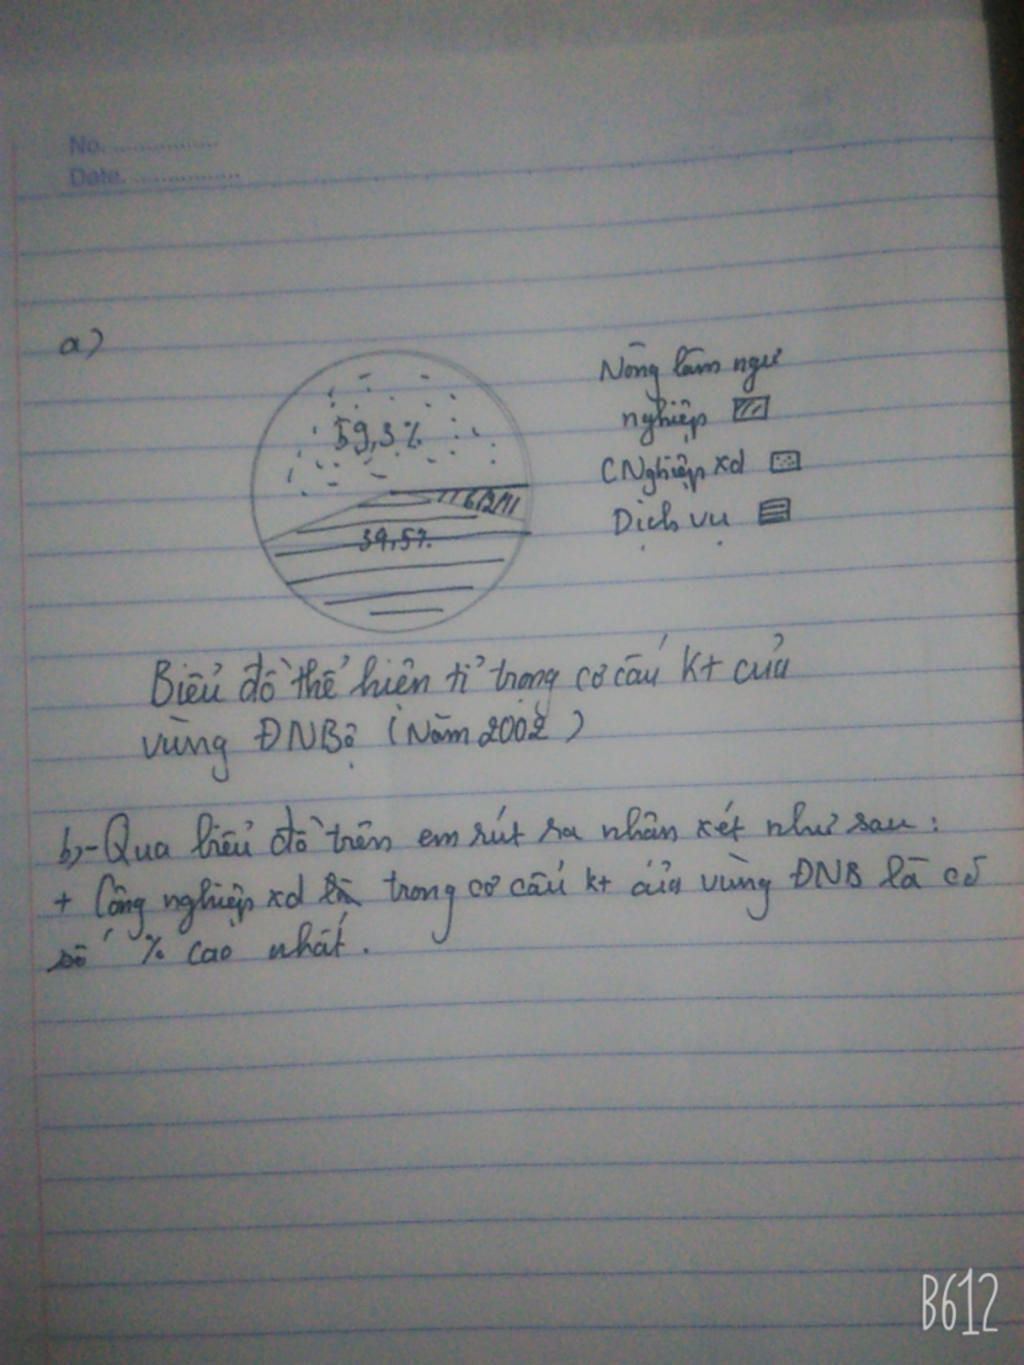 No. ................
Date. ................
a)
59,3%
6,2%
34,5%
Nông lâm ngư
nghiệp
CNghiệp xd
Dịch vụ
Biểu đồ thể hiện tỉ trọng cơ cấu kt của
vùng ĐNBộ (Năm 2002)
b,-Qua biểu đồ trên em rút ra nhận xét như sau:
+ Công nghiệp xd là trong cơ cấu kt của vùng ĐNB là có
số % cao nhất.
B612